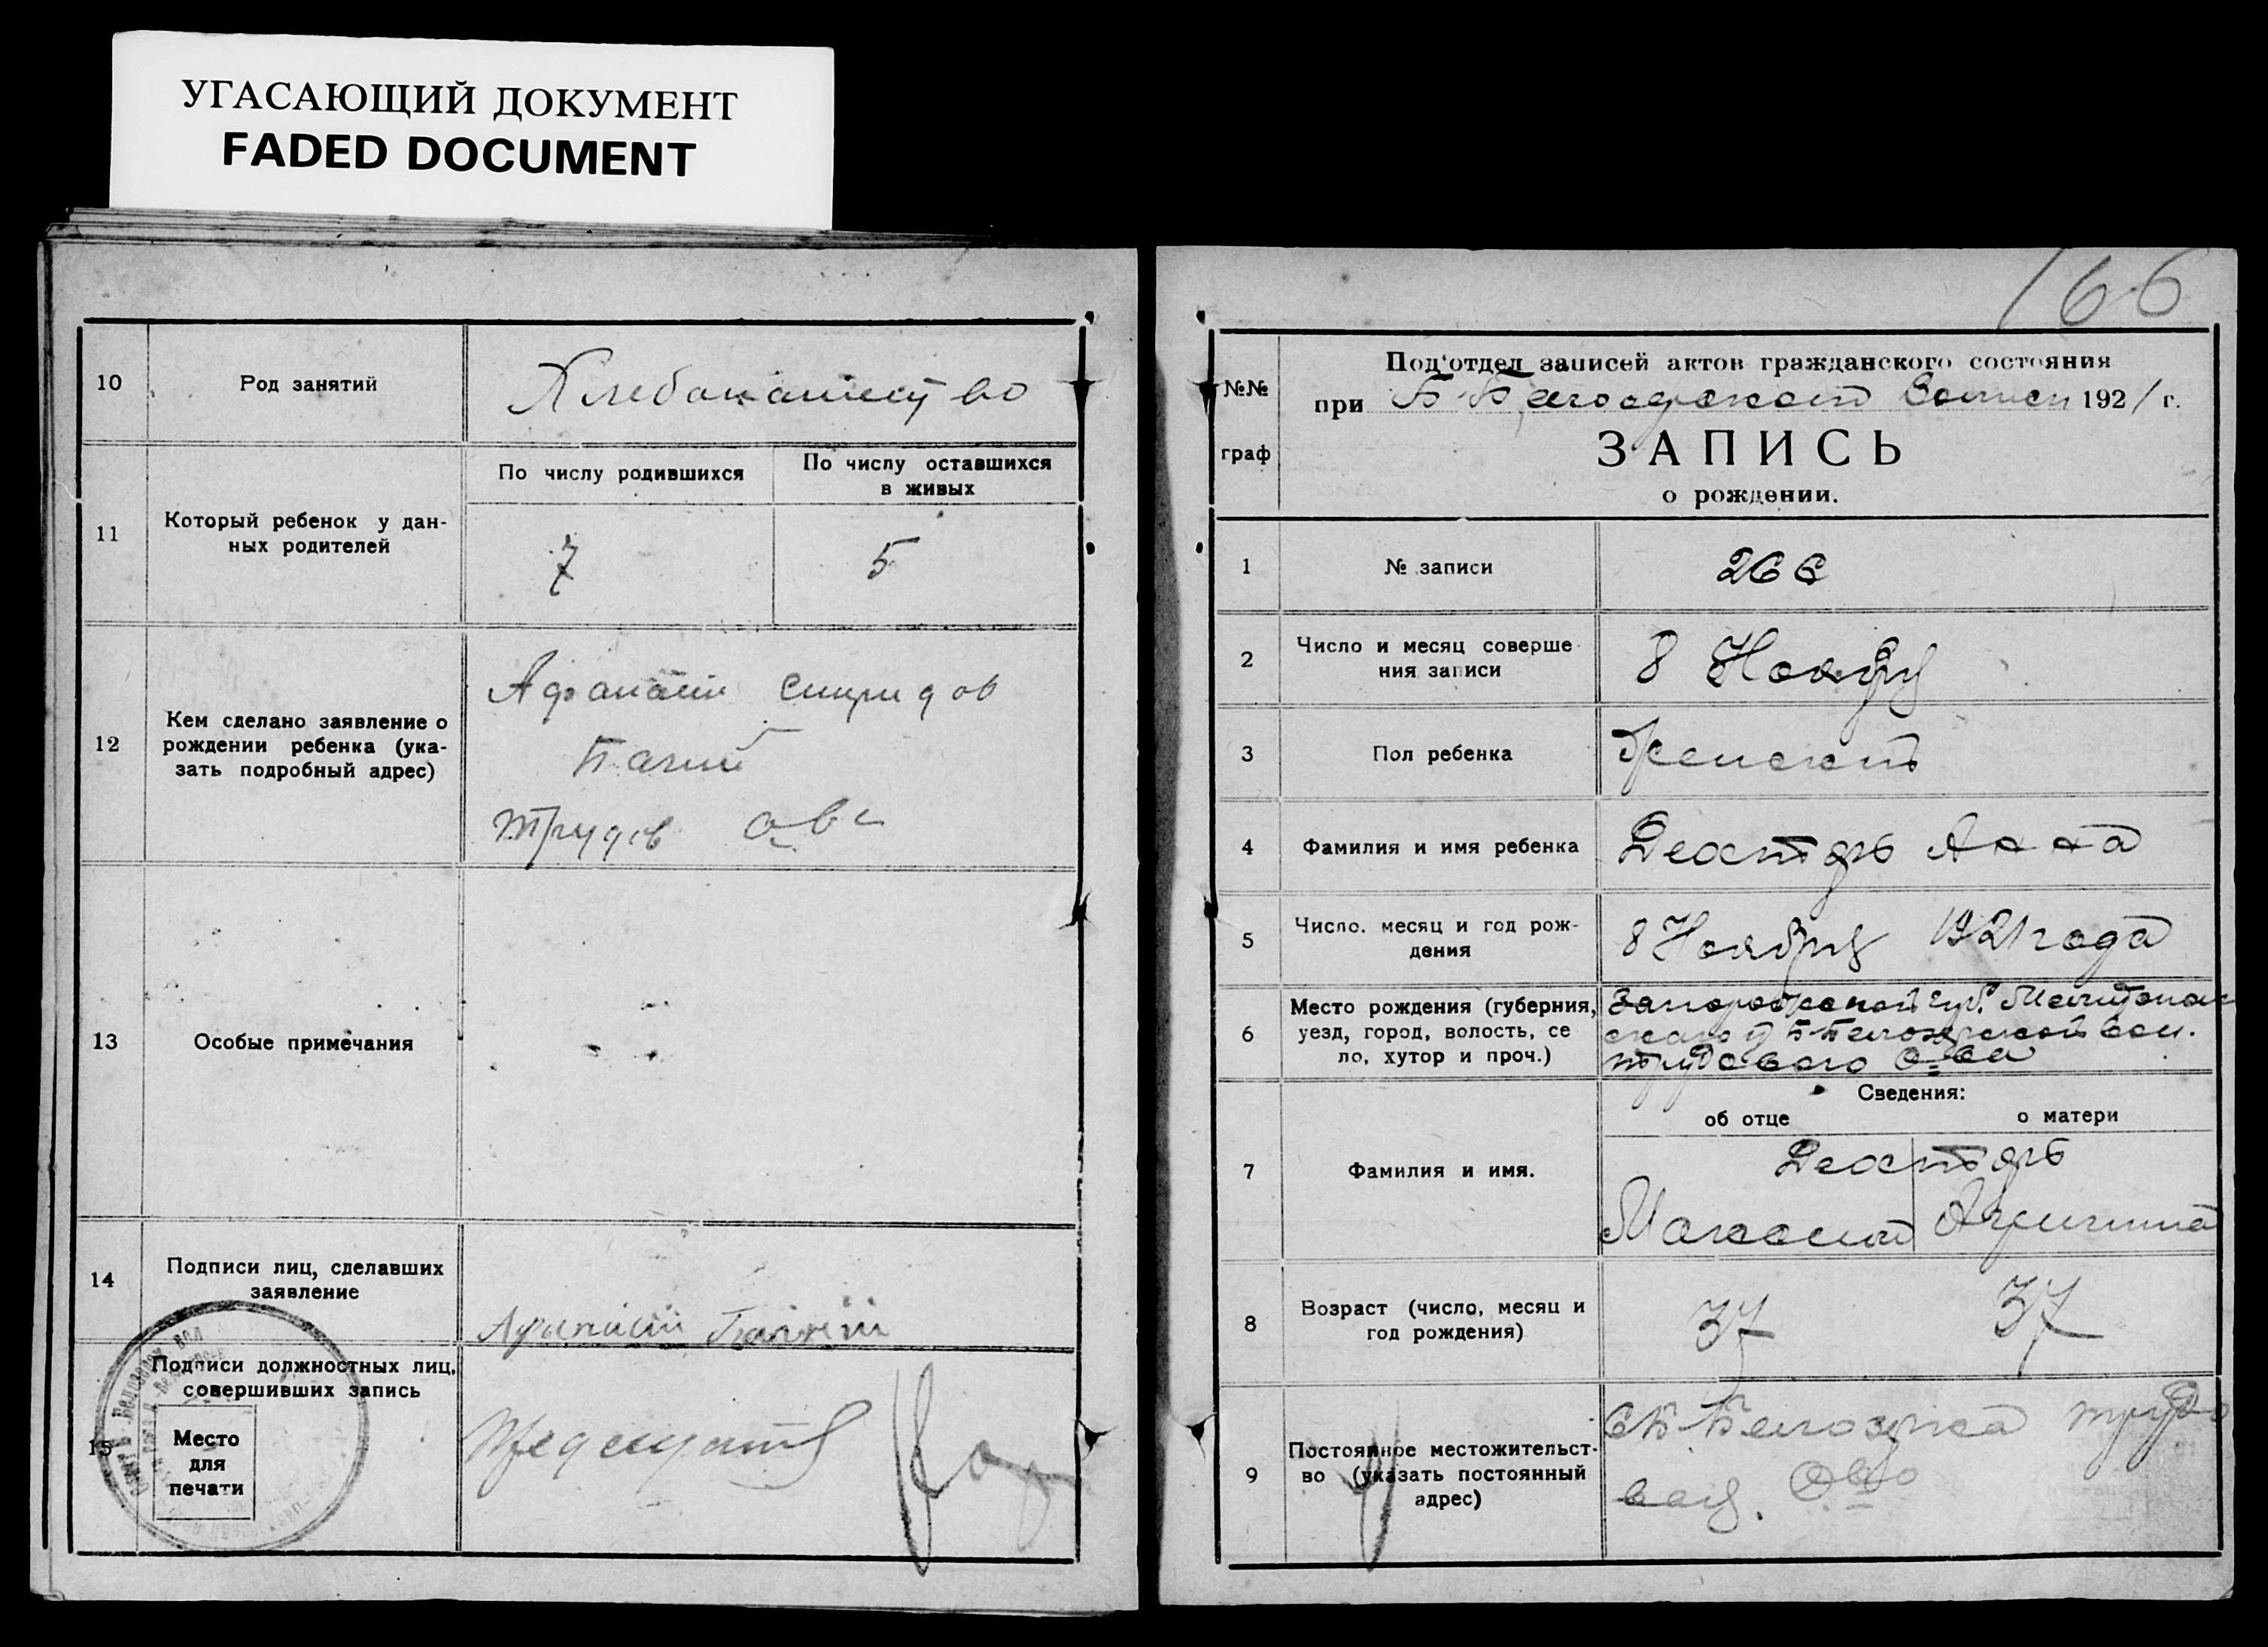 УГАСАЮЩИЙ ДОКУМЕНТ
FADED DOCUMENT
10
Род занятий
Хлебопашество
11
Который ребенок у дан-
ных родителей
По числу родившихся
По числу оставшихся
в живых
7
5
12
Кем сделано заявление о
рождении ребенка (ука-
зать подробный адрес)
Афанасий Спиридов
Палий
Трудов ова
13
Особые примечания
14
Подписи лиц, сделавших
заявление
Афанасий Палий
15
Подписи должностных лиц,
совершивших запись
Место
для
печати
166
№№
граф
Под'отдел записей актов гражданского состояния
при Б-Белозерской Волости 1921 г.
ЗАПИСЬ
о рождении.
1
№ записи
266
2
Число и месяц соверше-
ния записи
8 Ноября
3
Пол ребенка
Женский
4
Фамилия и имя ребенка
Анна
5
Число. месяц и год рож-
дения
8 Ноября 1921 года
6
Место рождения (губерния,
уезд, город, волость, се
ло, хутор и проч.)
Запорожской губ. Мелитополь
ского у Б-Белозерской вол.
Трудового О-ва
7
Фамилия и имя.
Сведения:
об отце
о матери
8
Возраст (число, месяц и
год рождения)
37
37
9
Постоянное местожительст-
во (указать постоянный
адрес)
с Б-Белозерка Трудо
вое. О-во